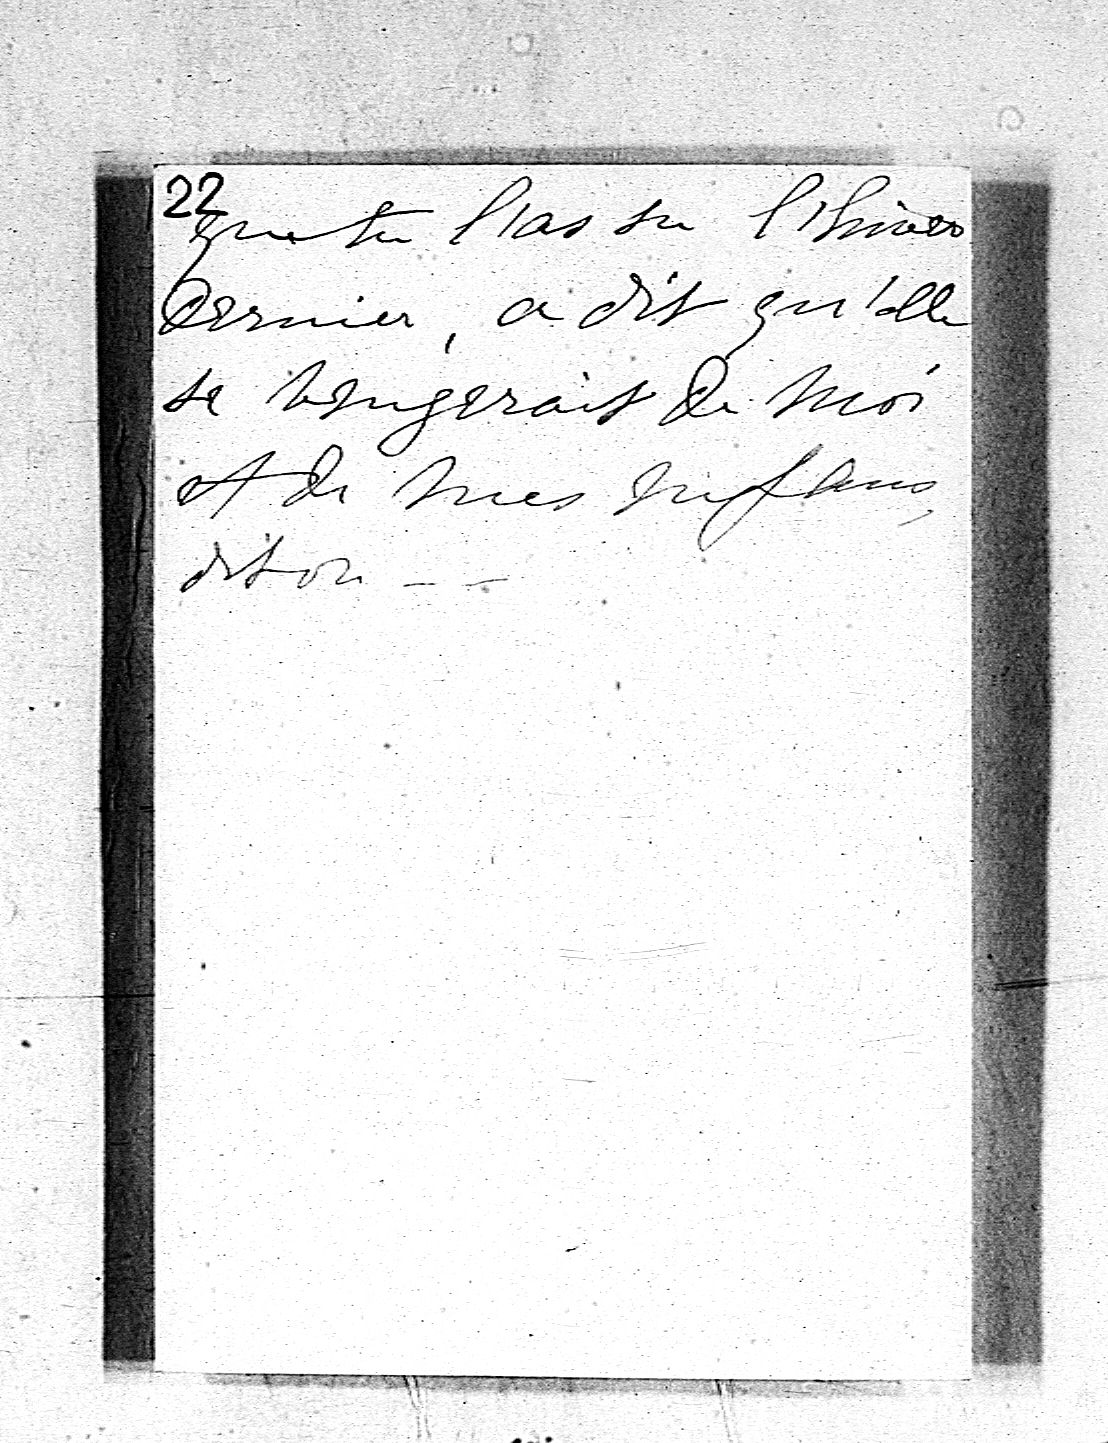 22
que tu l'as su l'hiver
dernier, a dit qu'elle
se vengerait de moi
et de mes enfans,
dit on - -